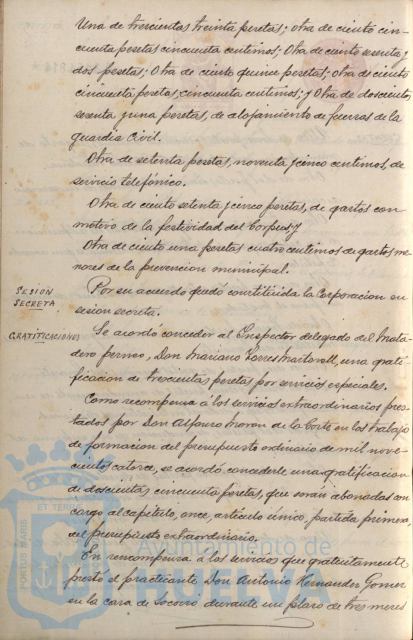 Una de trescientas treinta pesetas; otra de ciento cin-
cuenta pesetas cincuenta centimos; Otra de ciento sesenta y
dos pesetas; Otra de ciento quince pesetas; otra de ciento
cincuenta pesetas, cincuenta centimos; y Otra de doscientas
sesenta y una pesetas, de alojamiento de fuerzas de la
guardia Civil.
Otra de setenta pesetas, noventa y cinco centimos, de
servicio telefónico.
Otra de ciento setenta y cinco pesetas, de gastos con
motivo de la festividad del Corpus y
Otra de ciento una pesetas cuatro centimos de gastos me-
nores de la prevencion municipal.
SESIÓN
SECRETA
Por su acuerdo quedó constituida la Corporacion en
sesion secreta.
GRATIFICACIONES
Se acordó conceder al Inspector delegado del Mata-
dero Don Mariano Torres Martorell, una grati-
ficacion de trescientas pesetas por servicios especiales.
Como recompensa á los servicios extraordinarios pres-
tados por Don Alfonso Moron de la Corte en los trabajos
de formacion del presupuesto ordinario de mil nove-
cientos catorce, se acordó concederle una gratificacion
de doscientas cincuenta pesetas, que serán abonadas con
cargo al capítulo, once, artículo único, partida primera,
del presupuesto extraordinario.
En recompensa á los servicios que gratuitamente
prestó el practicante Don Antonio Hernandez Gomez
en la casa de Socorro durante un plazo de tres meses
PORTUS MARIS
ET TERRÆ
Ayuntamiento de
HUELVA